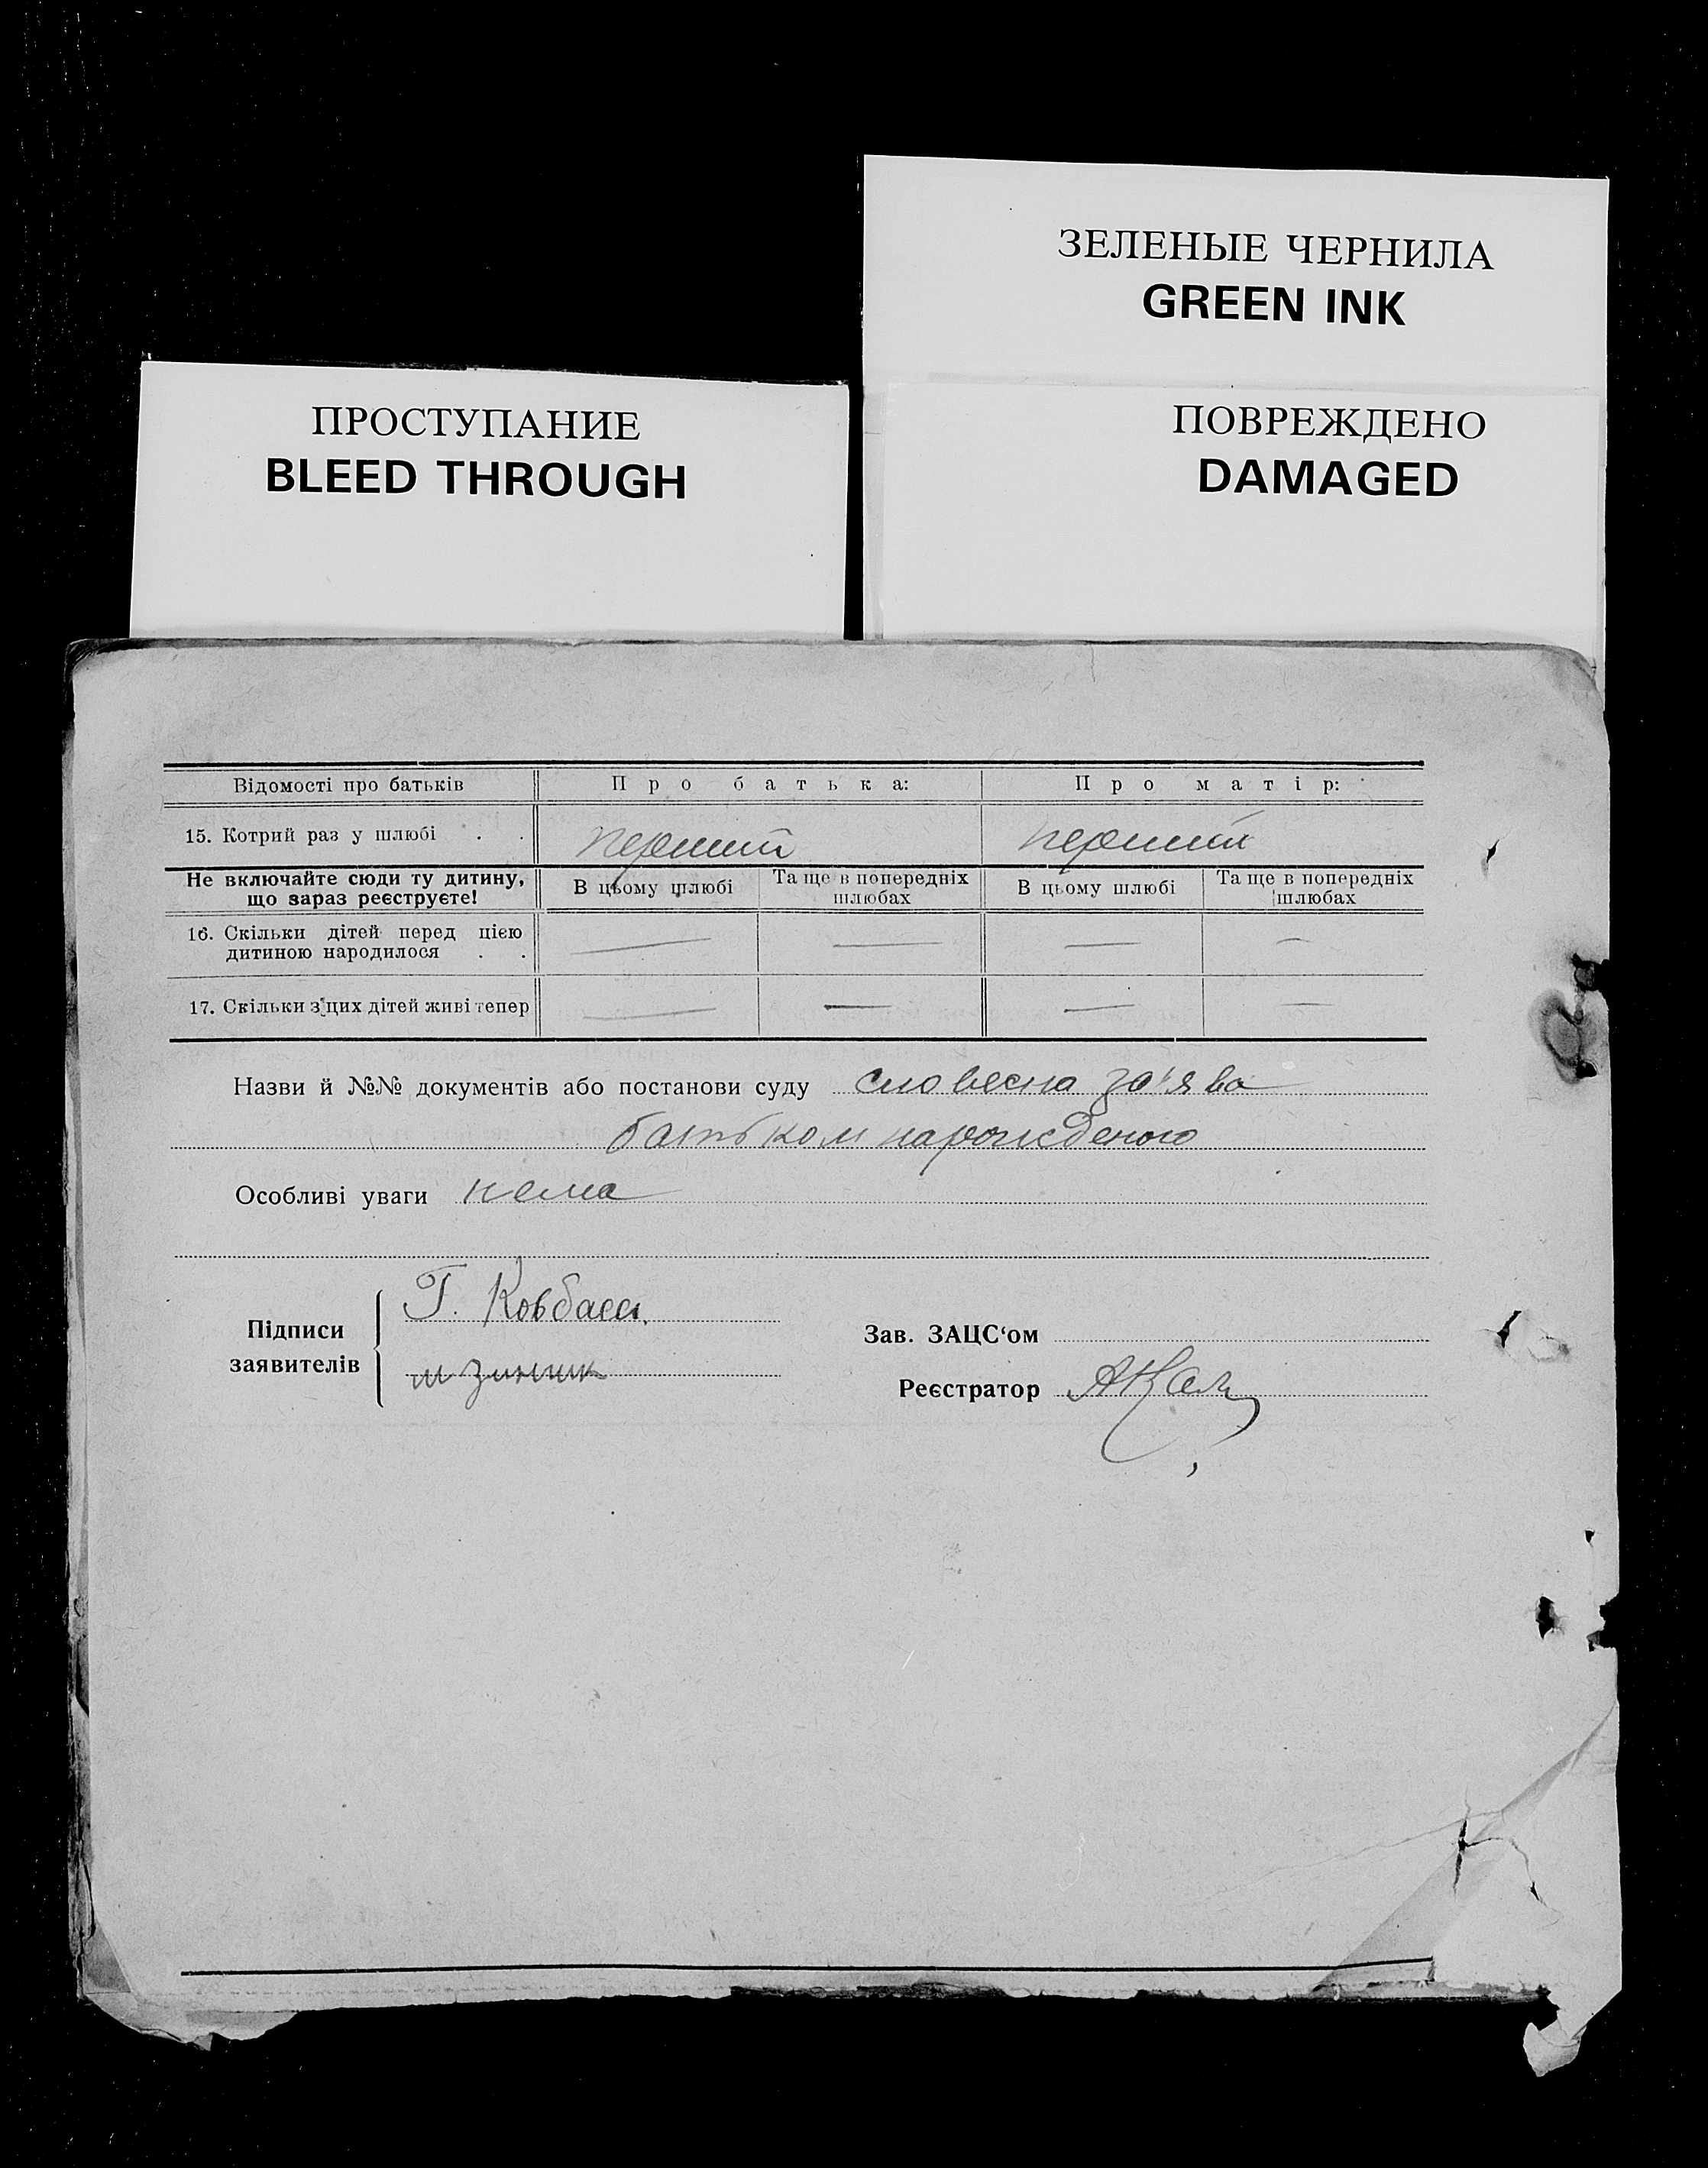 ЗЕЛЕНЫЕ ЧЕРНИЛА
GREEN INK
ПРОСТУПАНИЕ
BLEED THROUGH
ПОВРЕЖДЕНО
DAMAGED
Відомості про батьків Про батька: Про матір:
15. Котрий раз у шлюбі . . перший перший
Не включайте сюди ту дитину,
що зараз реєструєте!
В цьому шлюбі
Та ще в попередніх
шлюбах
В цьому шлюбі
Та ще в попередніх
шлюбах
16. Скільки дітей перед цією
дитиною народилося . . — — — —
17. Скільки з цих дітей живі тепер — — — —
Назви й №№ документів або постанови суду словесна за'ява
батьком народженого
Особливі уваги нема
Підписи
заявителів
Г. Ковбаса.
Зав. ЗАЦС‘ом
Реєстратор